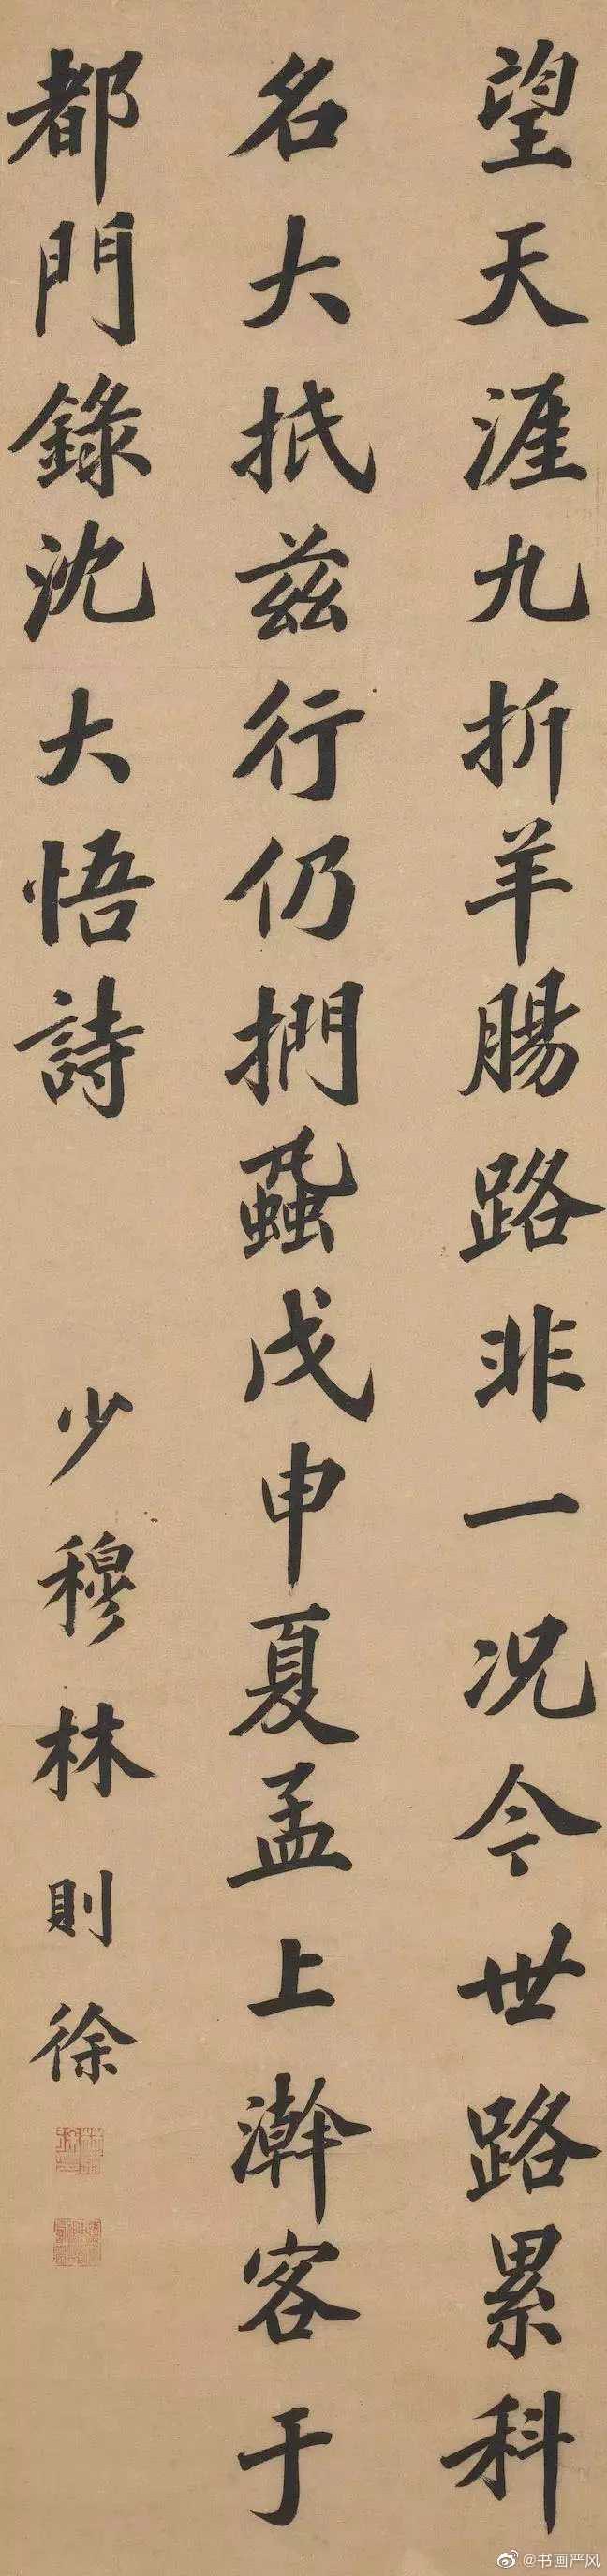 望天涯九折羊腸路非一况今世路累科
名大抵兹行仍捫蝨戊申夏孟上澣客于
都門錄沈大悟詩
少穆林則徐
@书画严风